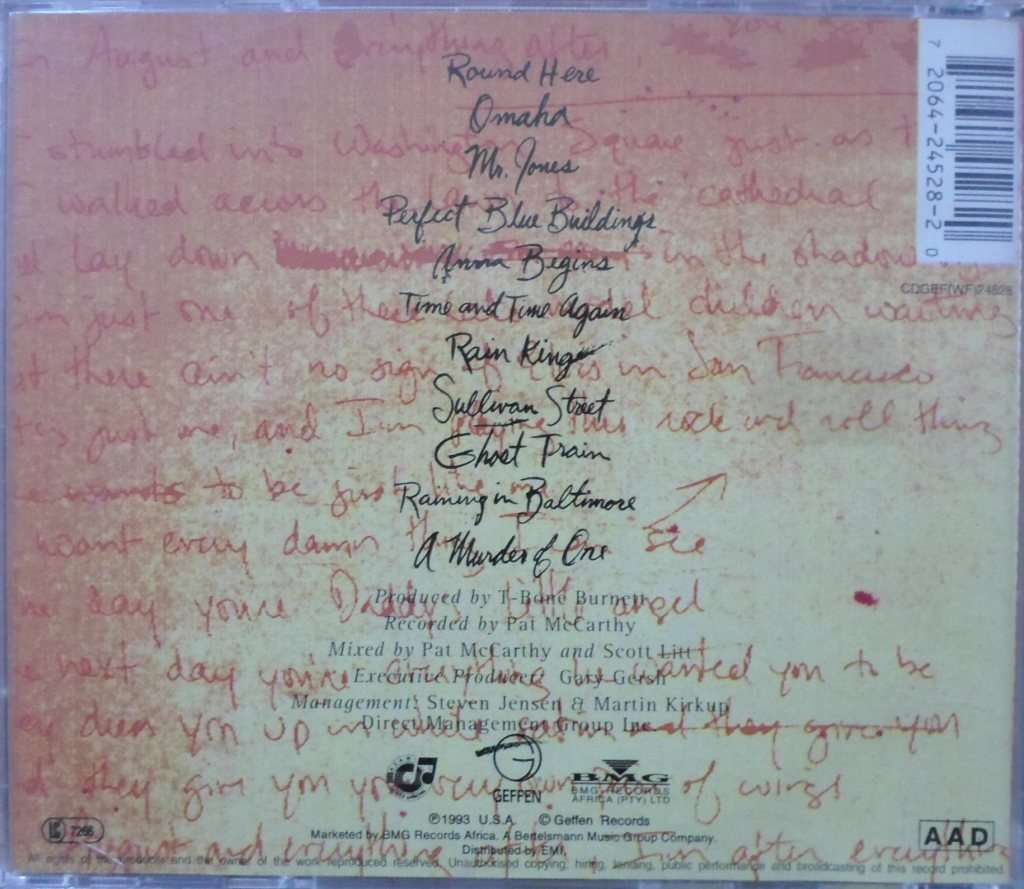 August and everything after
Round Here
Omaha
stumbled into Washington Square just as
Mr. Jones
walked across the the cathedral
Perfect Blue Buildings
lay down in the shadow
Anna Begins
just one of these children waiting
Time and Time Again
Rain King
there ain't no sign of in San Francisco
Sullivan Street
just me, and I'm this rock and roll thing
Ghost Train
to be just
Raining in Baltimore
want every damn see
A Murder of One
Produced by T-Bone Burnett
day you're Daddy's little angel
Recorded by Pat McCarthy
Mixed by Pat McCarthy and Scott Litt
next day you're everything he wanted you to be
Executive Producer: Gary Gersh
Management: Steven Jensen & Martin Kirkup
dress you up in and they give you
Direct Management Group Inc
they give you of wings
GEFFEN
BMG
BMG RECORDS
AFRICA (PTY) LTD
℗1993 U.S.A. © Geffen Records
Marketed by BMG Records Africa. A Bertelsmann Music Group Company.
Distributed by EMI.
August and everything after everything
All rights of the producers and the owner of the work reproduced reserved. Unauthorised copying, hiring, lending, public performance and broadcasting of this record prohibited.
7266
AAD
7 2064-24528-2 0